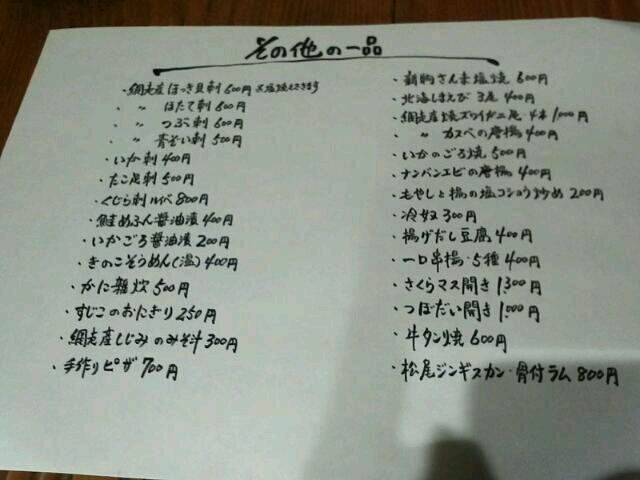 その他の一品
・網走産ほっき貝刺 600円 ※塩焼もできます
・ 〃 ほたて刺 600円
・ 〃 つぶ刺 600円
・ 〃 青そい刺 500円
・いか刺 400円
・たこ足刺 500円
・くじら刺ルイベ 800円
・鮭めふん醤油漬 400円
・いかごろ醤油漬 200円
・きのこそうめん(温) 400円
・かに雑炊 500円
・すじこのおにぎり 250円
・網走産しじみのみそ汁 300円
・手作りピザ 700円
・釧路さんま塩焼 600円
・北海しまえび 3尾 400円
・網走産焼ズワイガニ足 4本 1,000円
・ 〃 カスベの唐揚 400円
・いかのごろ焼 500円
・ナンバンエビの唐揚 400円
・もやしと揚の塩コショウ炒め 200円
・冷奴 300円
・揚げだし豆腐 400円
・一口串揚・5種 400円
・さくらマス開き 1,300円
・つぼだい開き 1,000円
・牛タン焼 600円
・松尾ジンギスカン・骨付ラム 800円